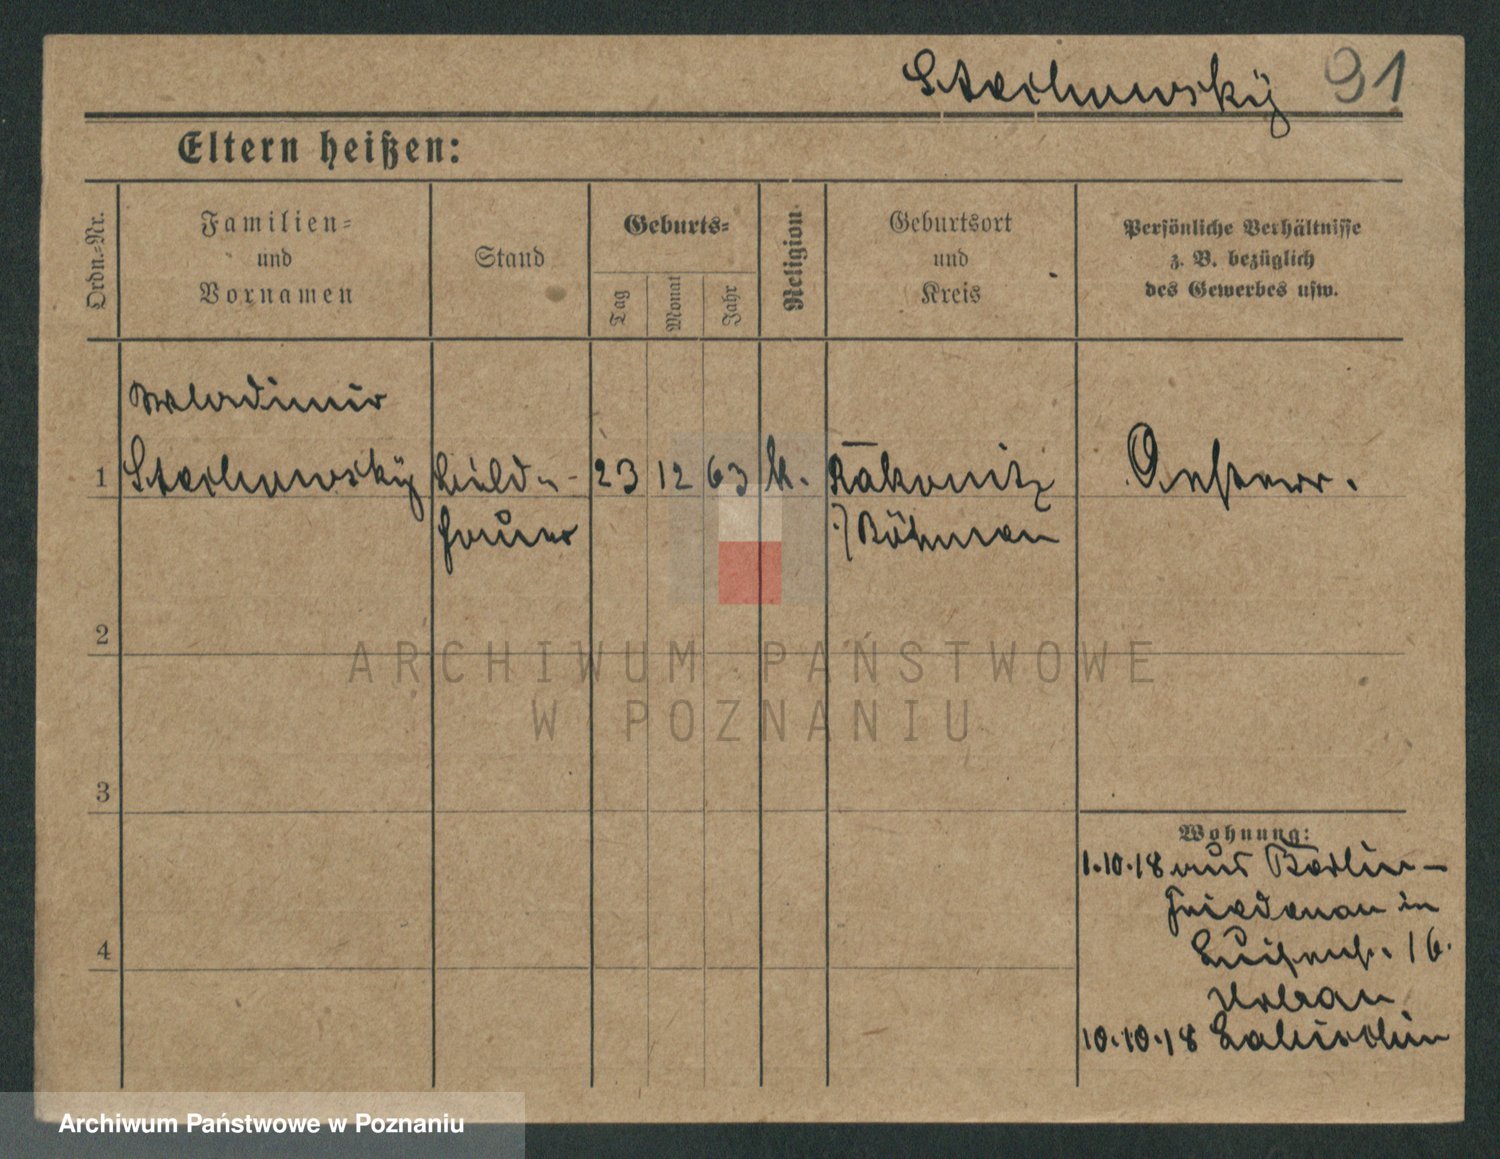 Stachowský 91
Eltern heißen:
Ordn.-Nr.
Familien=
und
Vornamen
Stand
Geburts=
Tag
Monat
Jahr
Religion
Geburtsort
und
Kreis
Persönliche Verhältnisse
z. B. bezüglich
des Gewerbes usw.
Wladimir
1 Stachowský Bild- 23 12 63 k. Rakonitz Oesterr.
hauer i/Böhmen
2
3
4
Wohnung:
1.10.18 aus Berlin-
Friedenau in
Luisenst. 16.
10.10.18 Labischin
ARCHIWUM PAŃSTWOWE
W POZNANIU
Archiwum Państwowe w Poznaniu